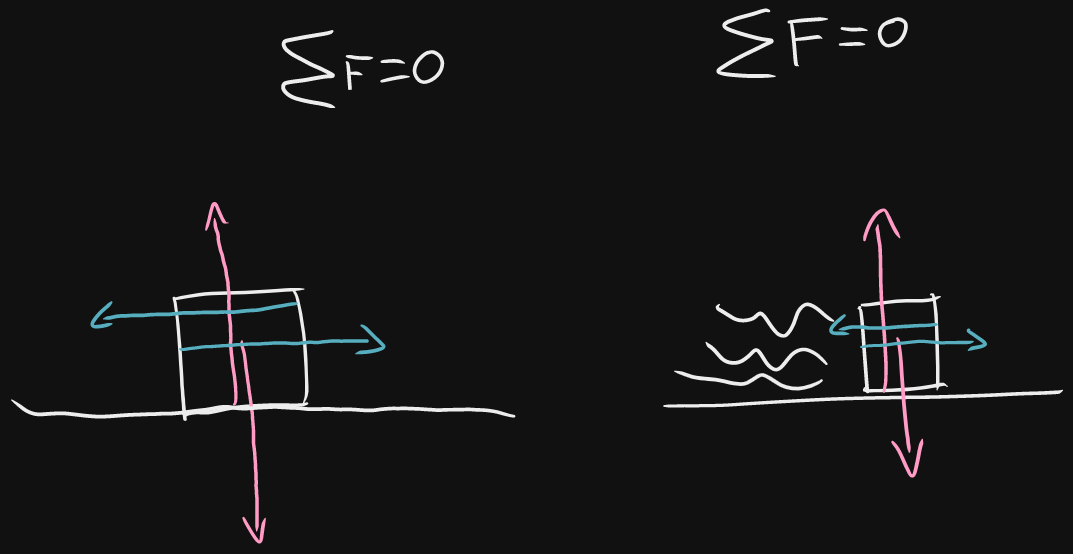 ∑F=0
∑F=0